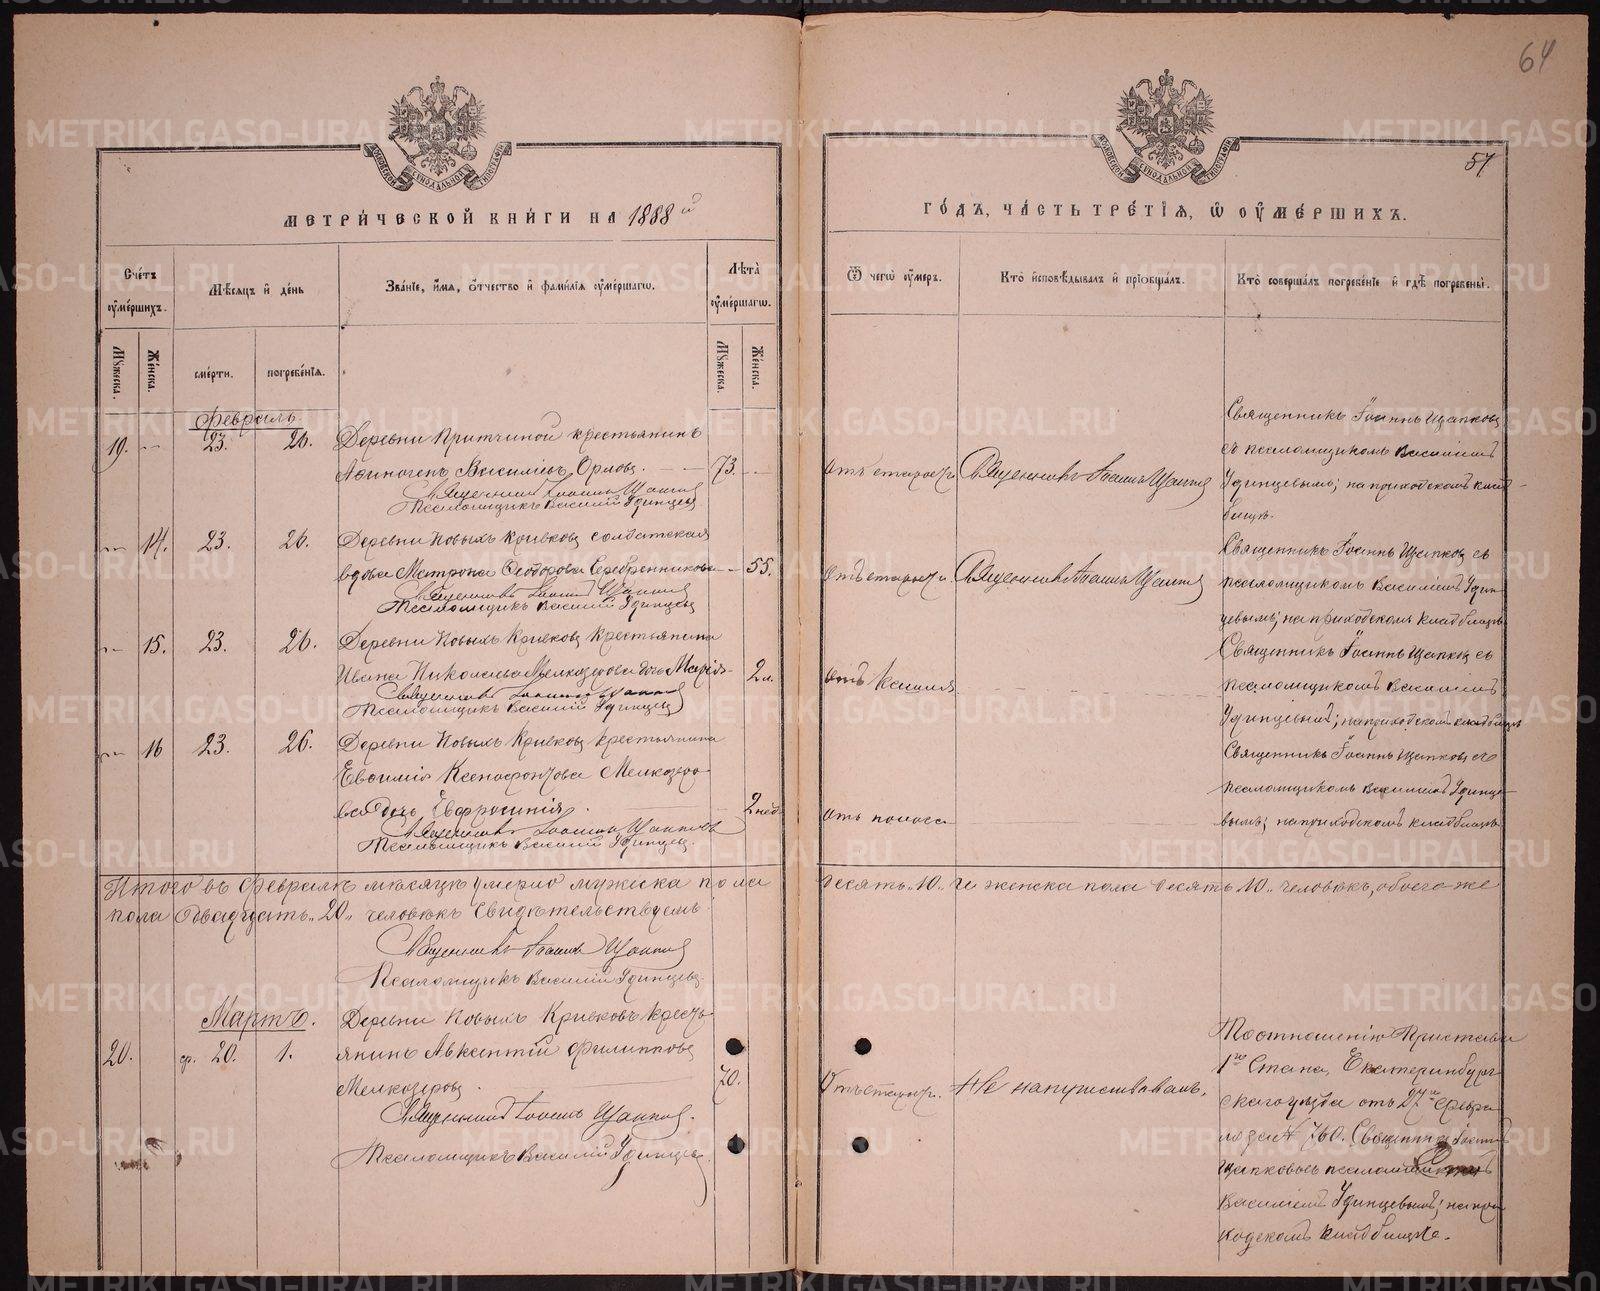 64
57
МЕТРИ́ЧЕСКОЙ КНИ́ГИ НА 1888 й
ГО́ДЪ, ЧА́СТЬ ТРЕ́ТЇѦ, Ѡ҆ ОУ҆МЕ́РШИХЪ.
Сче́тъ оу҆ме́ршихъ.
Мѣ́сѧцъ и҆ де́нь
Зва́нїе, и҆́мѧ, ѻ҆́тчество и҆ фами́лїѧ оу҆ме́ршагѡ.
Лѣ́та оу҆ме́ршагѡ.
Ѿ чегѡ̀ оу҆́меръ.
Кто̀ и҆сповѣ́дывалъ и҆ прїѡбща́лъ.
Кто̀ соверша́лъ погребе́нїе и҆ гдѣ̀ погребены̀.
Мꙋ́жеска.
Же́нска.
сме́рти.
погребе́нїѧ.
Мꙋ́жеска.
Же́нска.
Февраль.
19. 23. 26. Деревни Притчиной крестьянинъ
Аѳиногенъ Василіевъ Орловъ. 73.
Священникъ Іоаннъ Щапковъ
Псаломщикъ Василій Удинцевъ
Отъ старости Священникъ Іоаннъ Щапковъ
Священникъ Іоаннъ Щапковъ
съ псаломщикомъ Василіемъ
Удинцевымъ; на приходскомъ клад-
бищѣ.
14. 23. 26. Деревни Новыхъ Кривковъ солдатская
вдова Матрона Ѳеодорова Серебренникова 55.
Священникъ Іоаннъ Щапковъ
Псаломщикъ Василій Удинцевъ
Отъ старости Священникъ Іоаннъ Щапковъ
Священникъ Іоаннъ Щапковъ съ
псаломщикомъ Василіемъ Удин-
цевымъ; на приходскомъ кладбищѣ
15. 23. 26. Деревни Новыхъ Кривковъ крестьянина
Ивана Николаева Мелкозерова дочь Марія 2 л.
Священникъ Іоаннъ Щапковъ
Псаломщикъ Василій Удинцевъ
Отъ кашля
Священникъ Іоаннъ Щапковъ съ
псаломщикомъ Василіемъ
Удинцевымъ; на приходскомъ кладбищѣ
16 23. 26. Деревни Новыхъ Кривковъ крестьянина
Евѳимія Ксенофонтова Мелкозеро-
ва дочь Евфросинія. 2 нед.
Священникъ Іоаннъ Щапковъ
Псаломщикъ Василій Удинцевъ.
Отъ поноса
Священникъ Іоаннъ Щапковъ съ
псаломщикомъ Василіемъ Удинце-
вымъ; на приходскомъ кладбищѣ
Итого въ Февралѣ мѣсяцѣ умерло мужеска пола десять „10„ и женска пола десять „10„ человѣкъ, обоего же
пола двадцать „20„ человѣкъ Свидѣтельствуемъ
Священникъ Іоаннъ Щапковъ
Псаломщикъ Василій Удинцевъ.
Мартъ.
20. ф. 20. 1. Деревни Новыхъ Кривковъ кресть-
янинъ Авксентій Филипповъ
Мелкозеровъ. 70.
Священникъ Іоаннъ Щапковъ.
Псаломщикъ Василій Удинцевъ.
Отъ старости. Не напутствованъ.
По отношенію Пристава
1го Стана, Екатеринбург-
скаго уѣзда отъ 27го Февра-
ля за № 760. Священникъ Іоаннъ
Щапковъ съ псаломщикомъ
Василіемъ Удинцевымъ; на при-
ходскомъ кладбищѣ.